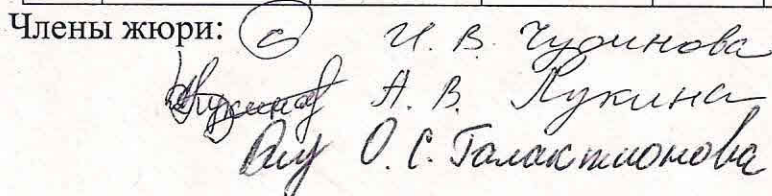 Члены жюри: И. В. Чудинова
А. В. Лукина
О. С. Галактионова